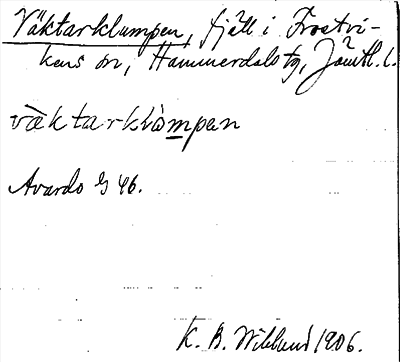 Väktarklumpen, fjäll i Frostvi-
kens sn, Hammerdals tg, Jämtl. l.
väktarklòmpen
Avardo G 46.
K. B. Wiklund 1906.